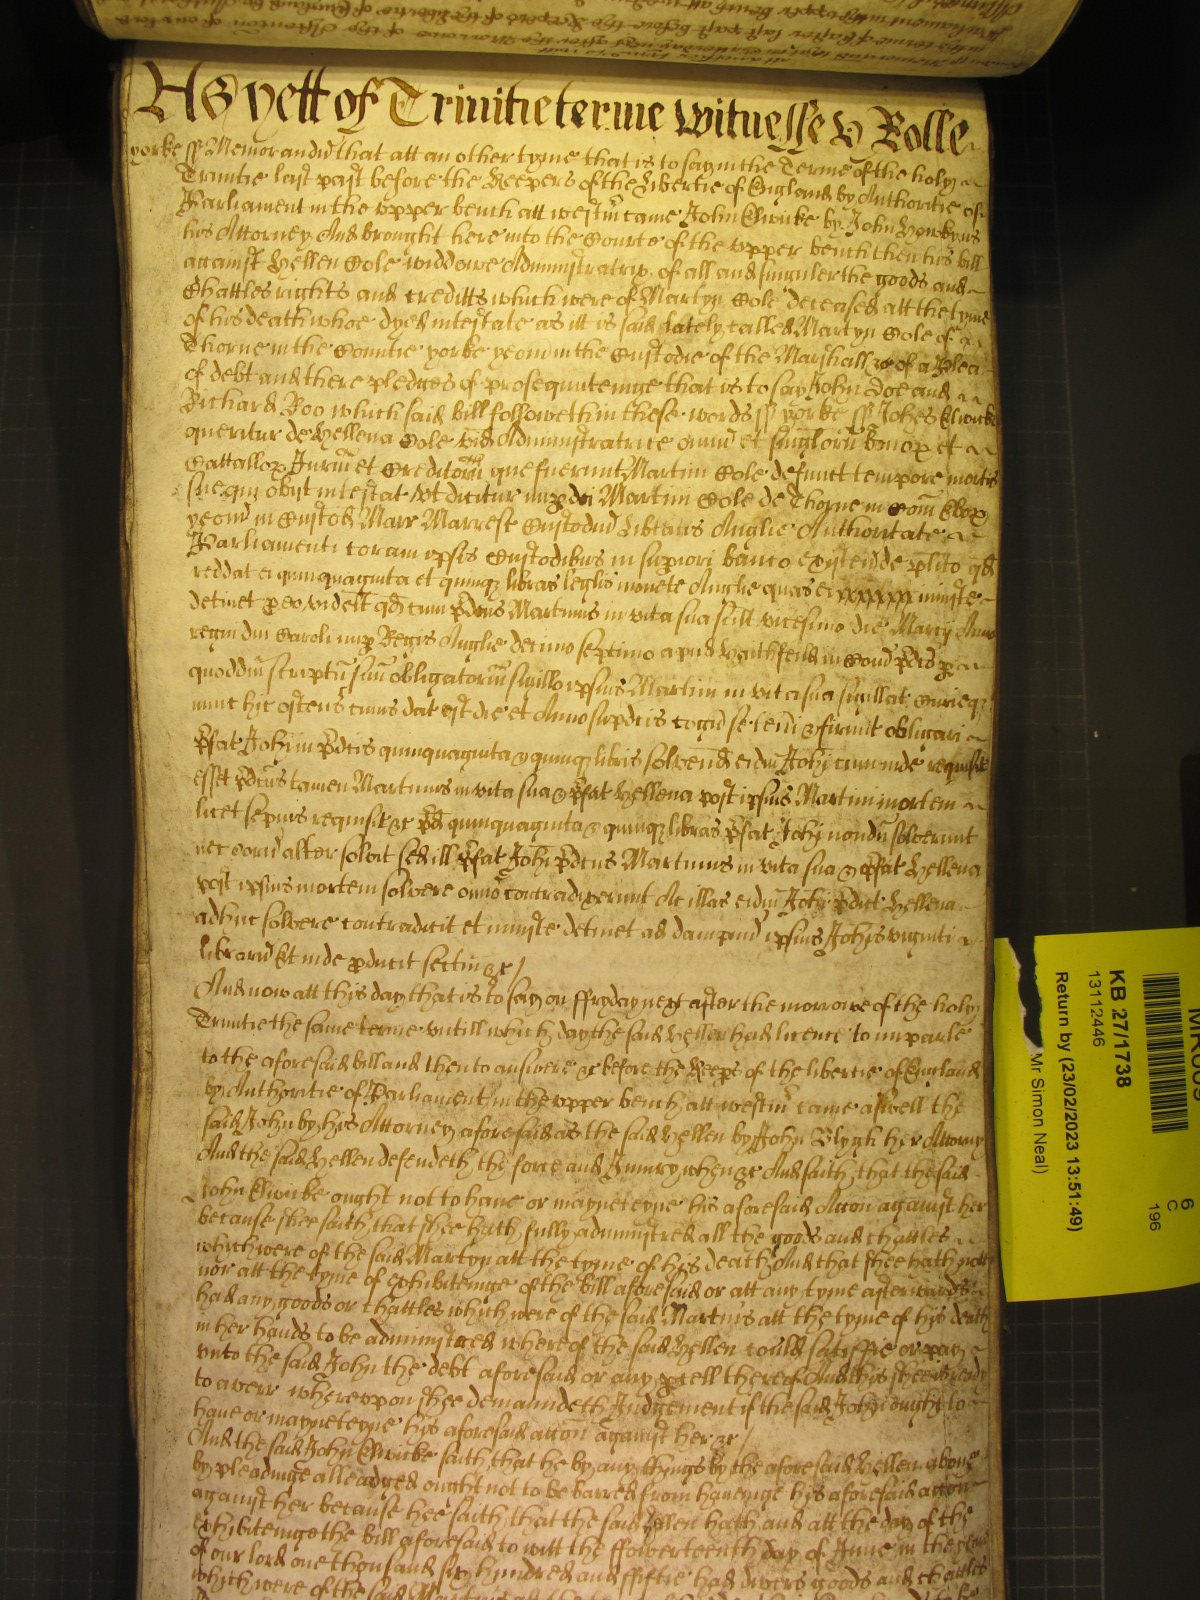 As yett of Trinitie terme Witnesse H Rolle
yorke ss Memorandu that att an other tyme that is to say in the Terme of the holy
Trinitie last past before the Keepers of the libertie of England by Authoritie of
Parliament in the vpper bench att westm came John Elwicke by John
his Attorney And brought here into the Courte of the vpper bench then his bill
against Hellen Cole widdowe Administratrix of all and singuler the goods and
Chattles rights and creditts which were of Martyn Cole deceased att the tyme
of his death whoe dyed intestate as itt is said lately called Martyn Cole of
Thorne in the Countie yorke yeom in the Custodie of the Marshall &c of a Plea
of debt and there pledges of prosequuteinge that is to say John Doe and
Richard Roo which said bill followeth in these words ss yorke ss Johes Elwicke
queritur de Hellena Cole vid Administratrice omniu et singloru bonox et
Cattallox Jurium et Creditoru que fuerunt Martini Cole defunct tempore mortis
sue qui obijt intestat vt dicitur nup dci Martini Cole de Thorne in Com Ebox
yeom in Custod Marr Marresc Custodu Libtatis Anglie Authoritate
Parliamenti coram ipsis Custodibus in supiori banco existen de plito qd
reddat ei quinquaginta et quinq libras leglis monete Anglie quas ei iniuste
detinet p eo videlt qd cum pdcus Martinus in vita sua scilt vicesimo die Marcij Anno
regni dni Caroli nup Regis Anglie decimo septimo apud in Com pdis p
quoddm scriptu suu obligatoriu sigillo ipsius Martini in vita sua sigillat Curieq
nunc hic ostens cuius dat est die et Anno supdcis cogn se teneri & firmit obligari
pfat Johi in pdcis quinquaginta & quinq libris solvend eidm Johi cum inde requisit
esset pdcus tamen Martinus in vita sua & pfat Hellena post ipsius Martini mortem
licet sepius requisit &c pd quinquaginta & quinq libras pfat Johi nondu solverunt
nec eoru alter solvit sed ill pfat Johi pdcus Martinus in vita sua & pfat Hellena
post ipsius mortem solvere omno contradixerunt Ac illas eidm Johi pdict Hellena
adhuc solvere contradicit et iniuste detinet ad dampnu ipsius Johis viginti
libraru Et inde pducit sectm &c /
And now att this day that is to say on ffryday next after the morrowe of the holy
Trinitie the same terme vntill which day the said Hellen had licence to imparle
to the aforesaid bill and then to answere &c before the Keeps of the libertie of England
by Authoritie of Parliament in the vpper bench att westm came aswell the
said John by his Attorney aforesaid as the said Hellen by John Blygh her Attorny
And the said Hellen defendeth the force and Iniury when &c And saith that the said
John Elwicke ought not to have or mayneteyne his aforesaid Accon against her
because shee saith that shee hath fully administred all the goods and chattles
which were of the said Martyn att the tyme of his death And that shee hath not
nor att the tyme of exhibiteinge of the bill aforesaid or att any tyme afterwards
had any goods or chattles which were of the said Martins att the tyme of his death
in her hands to be administred whereof the said Hellen could satisfie or pay
vnto the said John the debt aforesaid or any pcell thereof And this shee is ready
to averr wherevpon shee demaundeth Iudgement if the said John ought to
have or mayneteyne his aforesaid accon against her &c /
And the said John Elwicke saith that he by any things by the aforesaid Hellen above
by pleadinge alleadged ought not to be barred from haveinge his aforesaid accon
against her because hee saith that the said Hellen hath and att the day of the
exhibiteinge the bill aforesaid to witt the ffowerteenth day of June in the yeare
of our lord one thousand six hundred and ffiftie had divers goods and chattles
which were of the said Martyn att the
KB 27/1738
13112446
Return by (23/02/2023 13:51:49)
Mr Simon Neal)
6
C
196